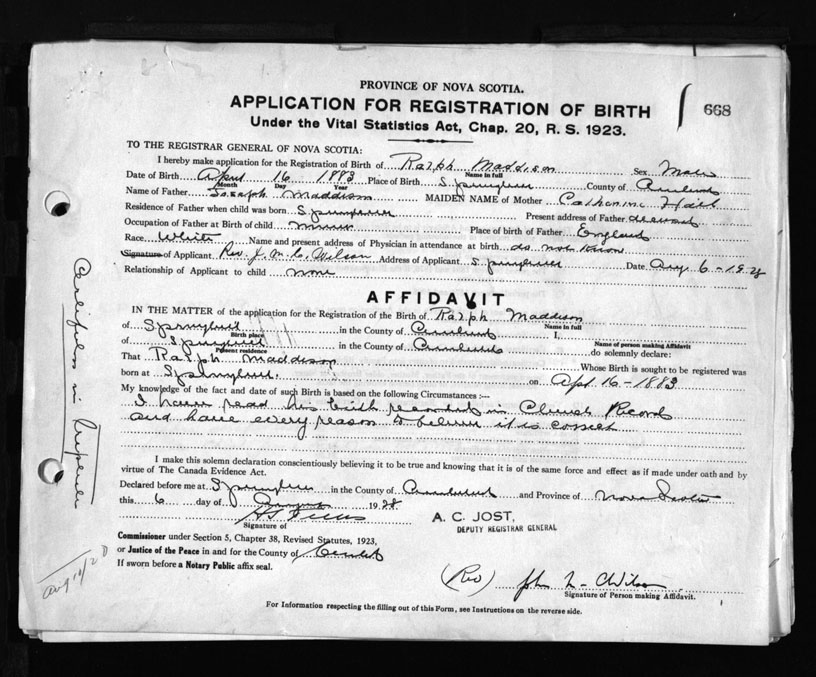 PROVINCE OF NOVA SCOTIA.
APPLICATION FOR REGISTRATION OF BIRTH
668
Under the Vital Statistics Act, Chap. 20, R. S. 1923.
TO THE REGISTRAR GENERAL OF NOVA SCOTIA:
I hereby make application for the Registration of Birth of Ralph Maddison Sex Male
Name in full
Date of Birth April 16 1883 Place of Birth Springhill County of Cumberland
Month Day Year
Name of Father Joseph Maddison MAIDEN NAME of Mother Catherine
Residence of Father when child was born Springhill Present address of Father deceased
Occupation of Father at Birth of child miner Place of birth of Father England
Race White Name and present address of Physician in attendance at birth do not know
Signature of Applicant Rev. J. M. C. Wilson Address of Applicant Springhill Date Aug 6 - 1928
Relationship of Applicant to child none
AFFIDAVIT
IN THE MATTER of the application for the Registration of the Birth of Ralph Maddison
Name in full
of Springhill in the County of Cumberland I,
Birth place Name of person making Affidavit
of Springhill in the County of Cumberland do solemnly declare:
Present residence
That Ralph Maddison Whose Birth is sought to be registered was
born at Springhill. on Apl. 16 - 1883
My knowledge of the fact and date of such Birth is based on the following Circumstances :—
I have read his birth recorded in Church Record
and have every reason to believe it is correct
I make this solemn declaration conscientiously believing it to be true and knowing that it is of the same force and effect as if made under oath and by
virtue of The Canada Evidence Act.
Declared before me at Springhill in the County of Cumberland and Province of Nova Scotia
this 6 day of August 1928
Signature of
A. C. JOST,
DEPUTY REGISTRAR GENERAL
Commissioner under Section 5, Chapter 38, Revised Statutes, 1923,
or Justice of the Peace in and for the County of
If sworn before a Notary Public affix seal.
(Rev) John Wilson
Signature of Person making Affidavit.
For Information respecting the filling out of this Form, see Instructions on the reverse side.
in
Aug